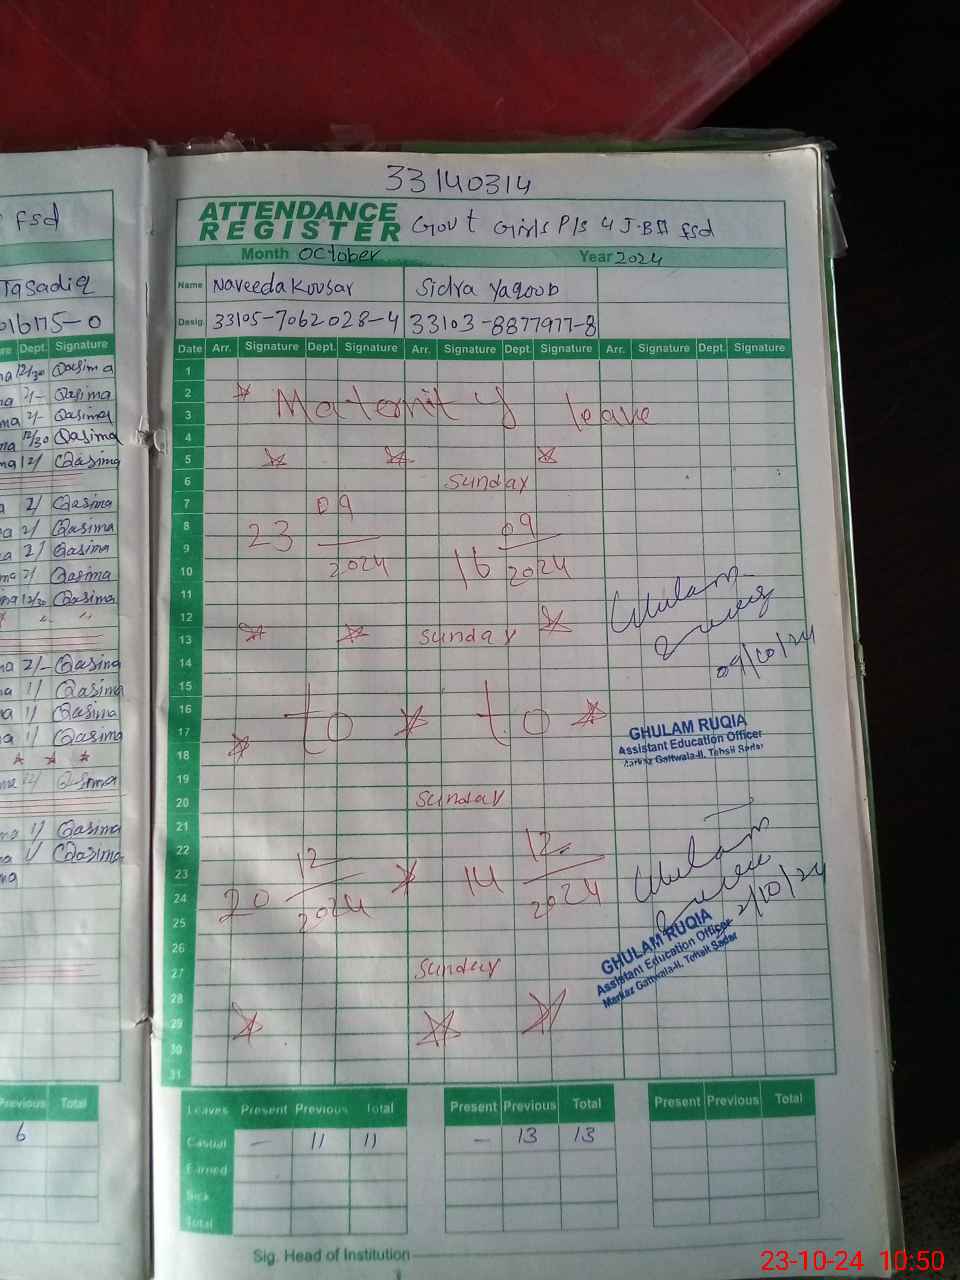 33140314
ATTENDANCE REGISTER Govt Girls P/S 4 J.B II fsd
Month October Year 2024
Name Naveeda Kousar Sidra Yaqoob
Desig. 33105-7062028-4 33103-8877977-8
Date Arr. Signature Dept. Signature Arr. Signature Dept. Signature Arr. Signature Dept. Signature
1
2
Maternity leave
3
4
5
6 Sunday
7
8
23 09/2024 16 09/2024
9
10
11
12
13 Sunday
09/10/24
14
15
16
to to
17
GHULAM RUQIA
Assistant Education Officer
Markaz Gattwala-II, Tehsil Sadar
18
19
20 Sunday
21
22
23
20 12/2024 14 12/2024
24
2/10/24
25
GHULAM RUQIA
Assistant Education Officer
Markaz Gattwala-II, Tehsil Sadar
26
27 Sunday
28
29
30
31
Leaves Present Previous Total Present Previous Total Present Previous Total
Casual - 11 11 - 13 13
Earned
Sick
Total
Sig. Head of Institution
fsd
Tasadiq
016175-0
Dept. Signature
12/30 Qasima
2/- Qasima
2/- Qasima
12/30 Qasima
12/ Qasima
2/ Qasima
2/ Qasima
2/ Qasima
2/ Qasima
12/30 Qasima
2/- Qasima
1/ Qasima
1/ Qasima
1/ Qasima
12/ Qasima
1/ Qasima
1/ Qasima
Previous Total
6
23-10-24 10:50